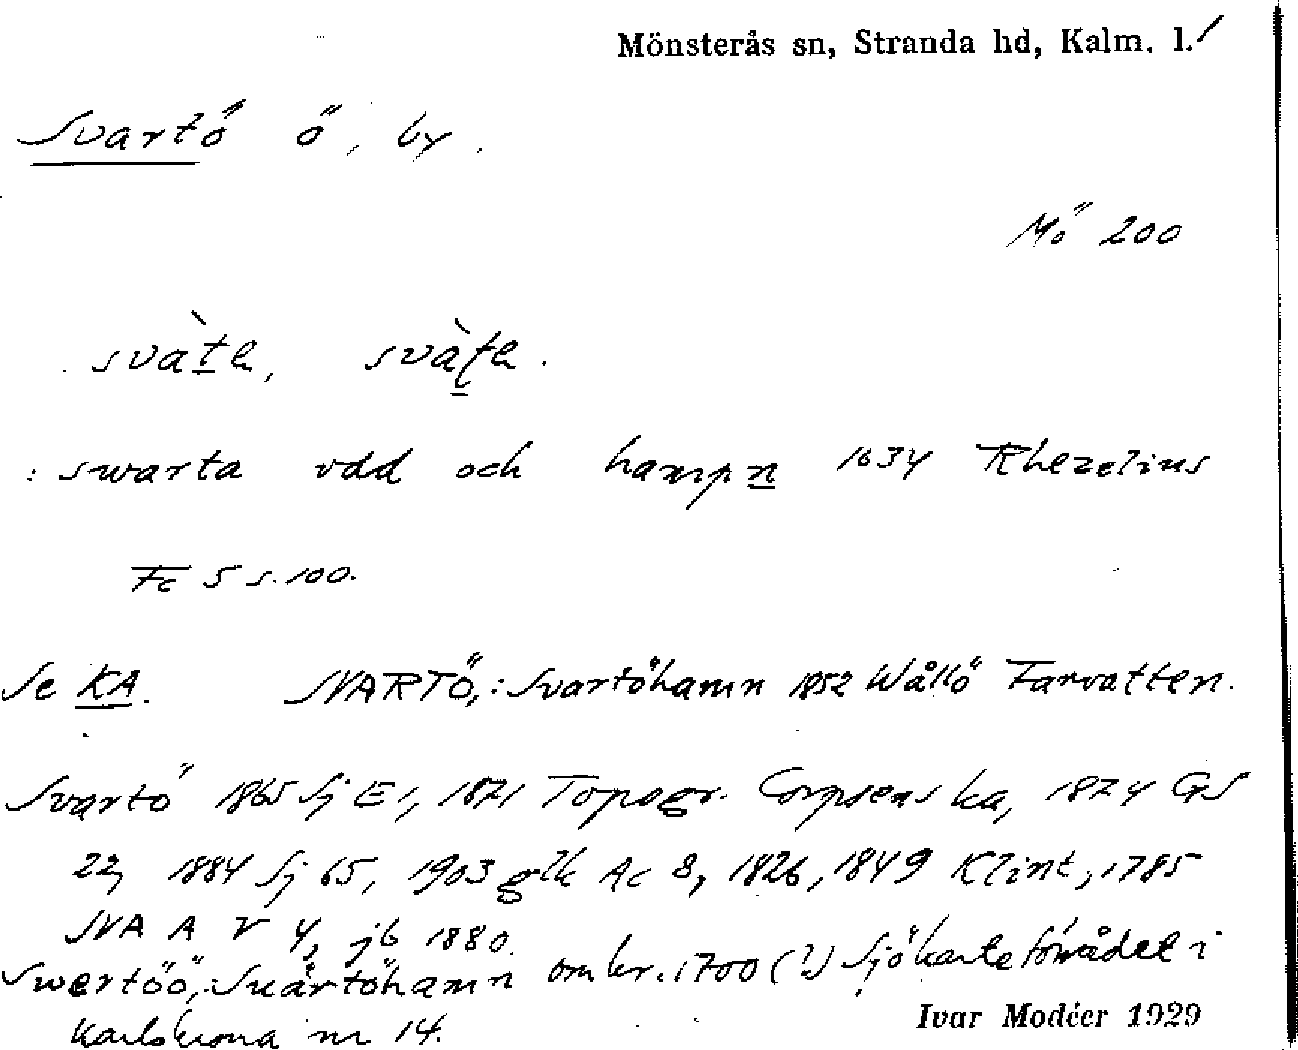 Mönsterås sn, Stranda hd, Kalm. l.
Svartö ö, by.
Mö 200
svàte, svàte.
: swarta vdd och hampn 1634 Rhezelius
Fc 5 s. 100.
Se KA. SVARTÖ, : Svartöhamn 1852 Wållö Farvatten.
Svartö 1865 Sj E 1, 1871 Topogr. Corpsens ka, 1874 GS
22, 1884 Sj 65, 1903 glk Ac 8, 1826, 1849 Klint, 1785
SVA A V 4, jb 1880.
Swertöö, : Suärtöhamn omkr. 1700 (?) Sjökarteförrådet i
Karlskrona nr 14.
Ivar Modéer 1929